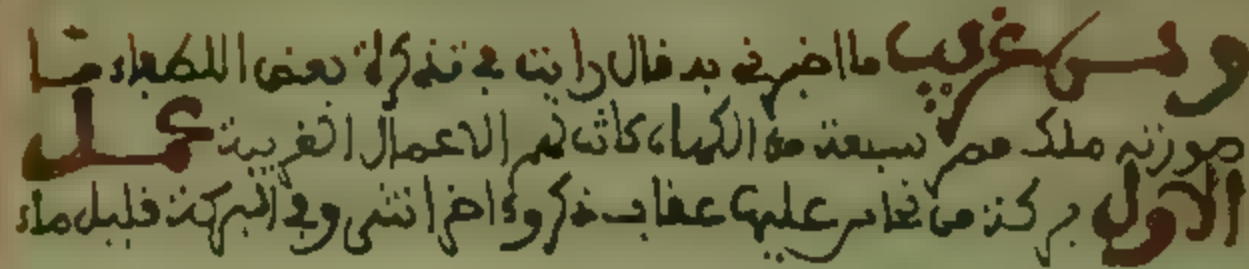 ومن غريب ما اخبرني به قال رايت في تذكرة بعض الفضلاء ما
صورته ملك مصر سبعة من الكهان كانت لهم الاعمال الغريبة عمل
الاول بركة من نحاس عليها عقاب ذكر واخر انثى وفي البركة قليل ماء